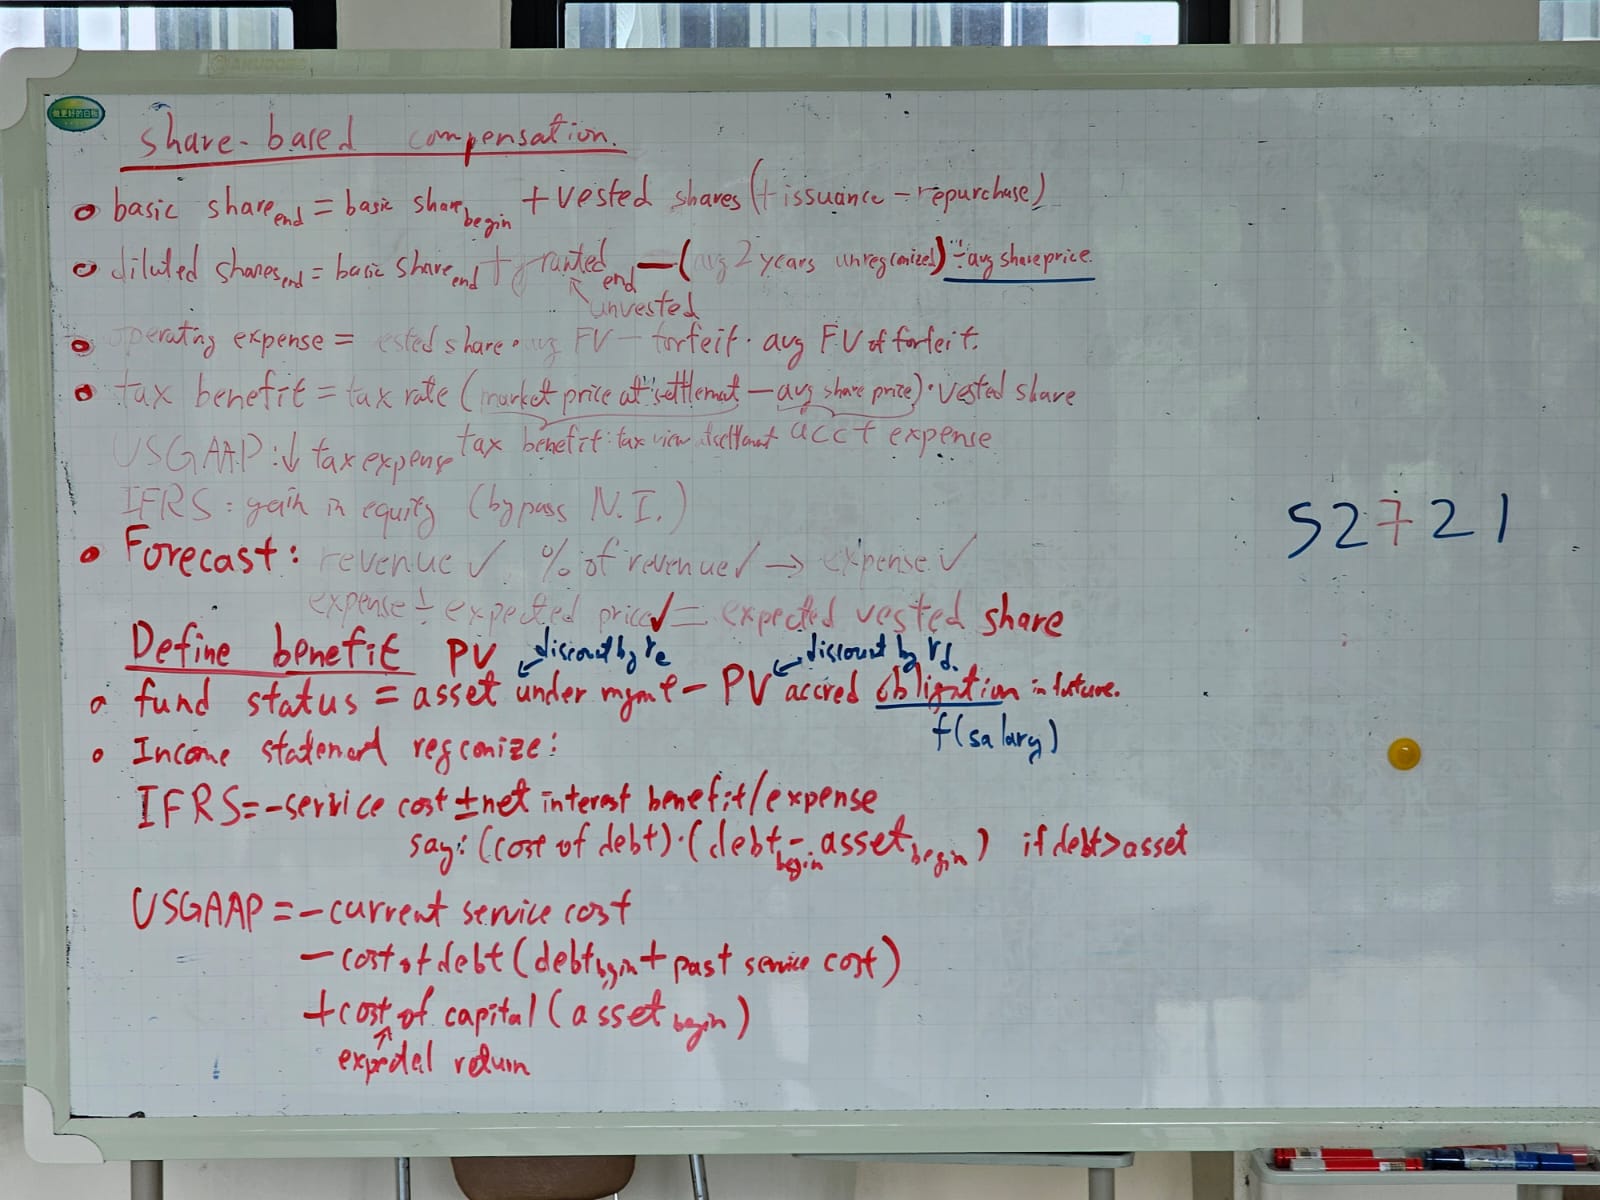 做更好的白板
share-based compensation.
basic share end = basic share begin + vested shares (+ issuance - repurchase)
diluted shares end = basic share end + granted end - (avg 2 years unregconized) ÷ avg share price.
unvested
operating expense = ested share · avg FV - forfeit · avg FV of forfeit.
tax benefit = tax rate (market price at settlemat - avg share price) · vested share
tax benefit: tax view acct expense
USGAAP: ↓ tax expense
IFRS: gain in equity (bypass N.I.)
52721
Forecast: revenue ✓, % of revenue ✓ → expense ✓
expense ÷ expected price ✓ = expected vested share
Define benefit PV discount by re discount by rd.
fund status = asset under mgmt - PV accred obligation in future.
f(salary)
Income statement regconize:
IFRS = - service cost ± net interest benefit/expense
say: (cost of debt)·(debt begin - asset begin) if debt > asset
USGAAP = - current service cost
- cost of debt (debt begin + past service cost)
+ cost of capital (asset begin)
expected return